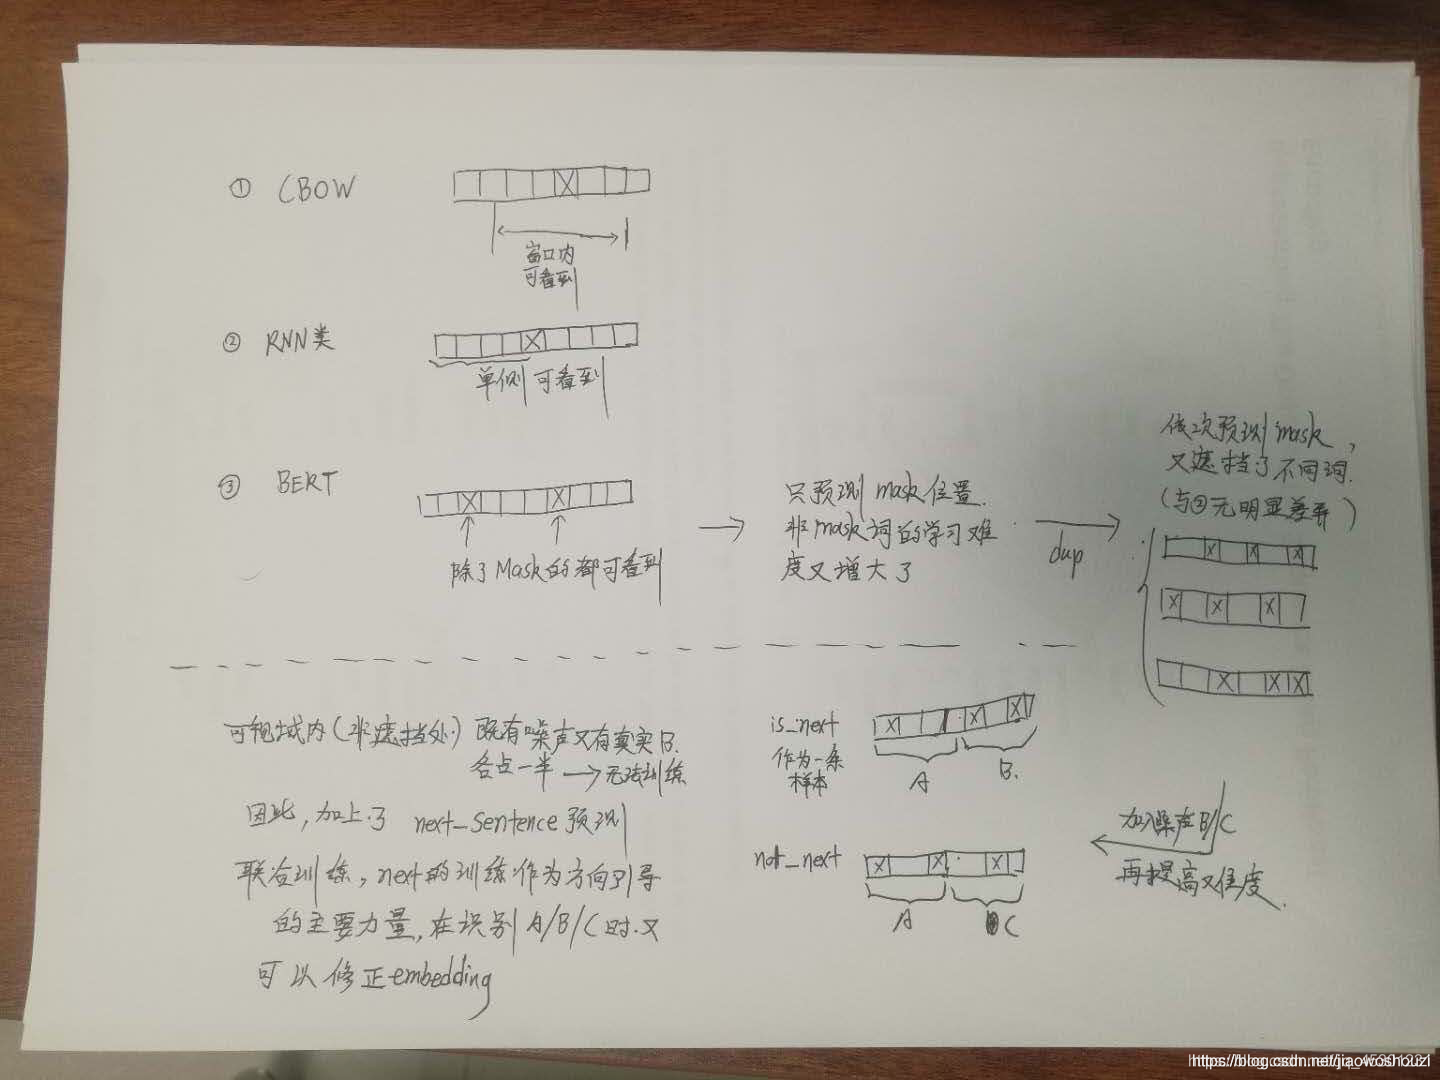 ① CBOW
窗口内
可看到
② RNN类
单侧可看到
③ BERT
除了Mask的都可看到
只预测mask位置.
非mask词的学习难
度又增大了
dup
依次预测mask,
又遮挡了不同词.
(与②无明显差异)
可视域内(非遮挡处)既有噪声又有真实B.
各占一半→无法训练
因此,加上了 next_sentence预测
联合训练,next的训练作为方向引导
的主要力量,在识别A/B/C时.又
可以修正embedding
is_next
作为一条
样本
A
B.
not_next
A
C
加入噪声B/C
再提高难度.
https://blog.csdn.net/jiaowoshouzi